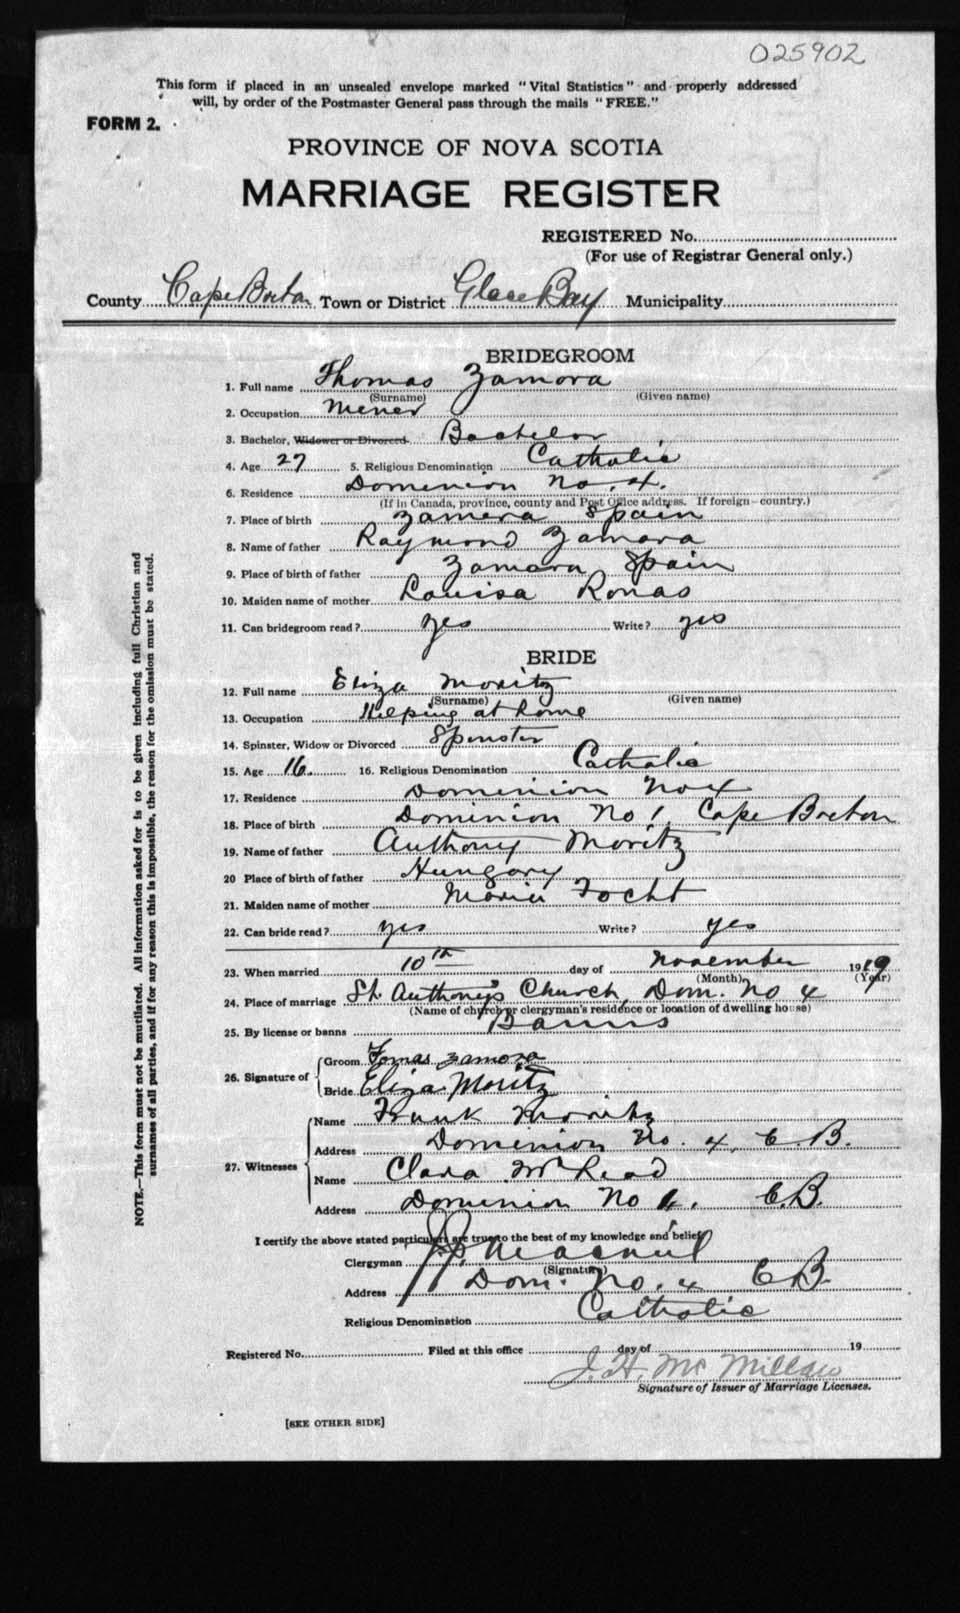 025902
This form if placed in an unsealed envelope marked "Vital Statistics" and properly addressed
will, by order of the Postmaster General pass through the mails "FREE."
FORM 2.
PROVINCE OF NOVA SCOTIA
MARRIAGE REGISTER
REGISTERED No.
(For use of Registrar General only.)
County Cape Breton Town or District Glace Bay Municipality
BRIDEGROOM
1. Full name Thomas Zamora
(Surname) (Given name)
2. Occupation Mener
3. Bachelor, Widower or Divorced Bachelor
4. Age 27 5. Religious Denomination Catholic
6. Residence Dominion No. 4.
(If in Canada, province, county and Post Office address. If foreign—country.)
7. Place of birth Zamera Spain
8. Name of father Raymond Zamora
9. Place of birth of father Zamora Spain
10. Maiden name of mother Louisa Ronas
11. Can bridegroom read? yes Write? yes
BRIDE
12. Full name Eliza Moritz
(Surname) (Given name)
13. Occupation Helping at home
14. Spinster, Widow or Divorced Spinster
15. Age 16. 16. Religious Denomination Catholic
17. Residence Dominion No 4
18. Place of birth Dominion No 1 Cape Breton
19. Name of father Anthony Moritz
20 Place of birth of father Hungary
21. Maiden name of mother Maria Focht
22. Can bride read? yes Write? yes
23. When married 10th day of November 1919
(Month) (Year)
24. Place of marriage St. Anthony's Church, Dom. No 4
(Name of church or clergyman's residence or location of dwelling house)
25. By license or banns Banns
26. Signature of Groom Tomas Zamora
Bride Eliza Moritz
27. Witnesses Name Frank Moritz
Address Dominion No. 4, C.B.
Name Clara McLeod
Address Dominion No 4. C.B.
I certify the above stated particulars are true to the best of my knowledge and belief
Clergyman
(Signature)
Address Dom. No. 4 C B.
Religious Denomination Catholic
Registered No. Filed at this office day of 19
J. H. McMillan
Signature of Issuer of Marriage Licenses.
[SEE OTHER SIDE]
NOTE.—This form must not be mutilated. All information asked for is to be given including full Christian and
surnames of all parties, and if for any reason this is impossible, the reason for the omission must be stated.